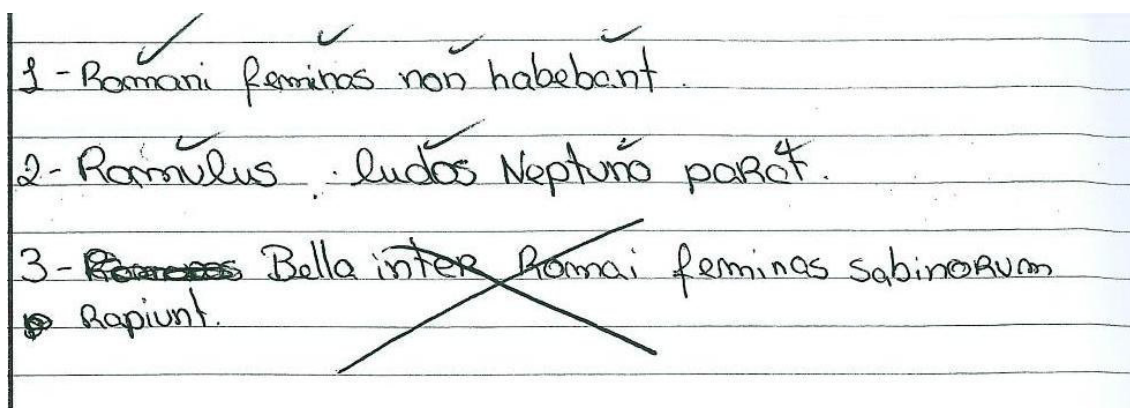 1 - Romani feminas non habebant.
2 - Romulus ludos Neptuno parat.
3 - Bella inter Romai feminas sabinorum
Rapiunt.